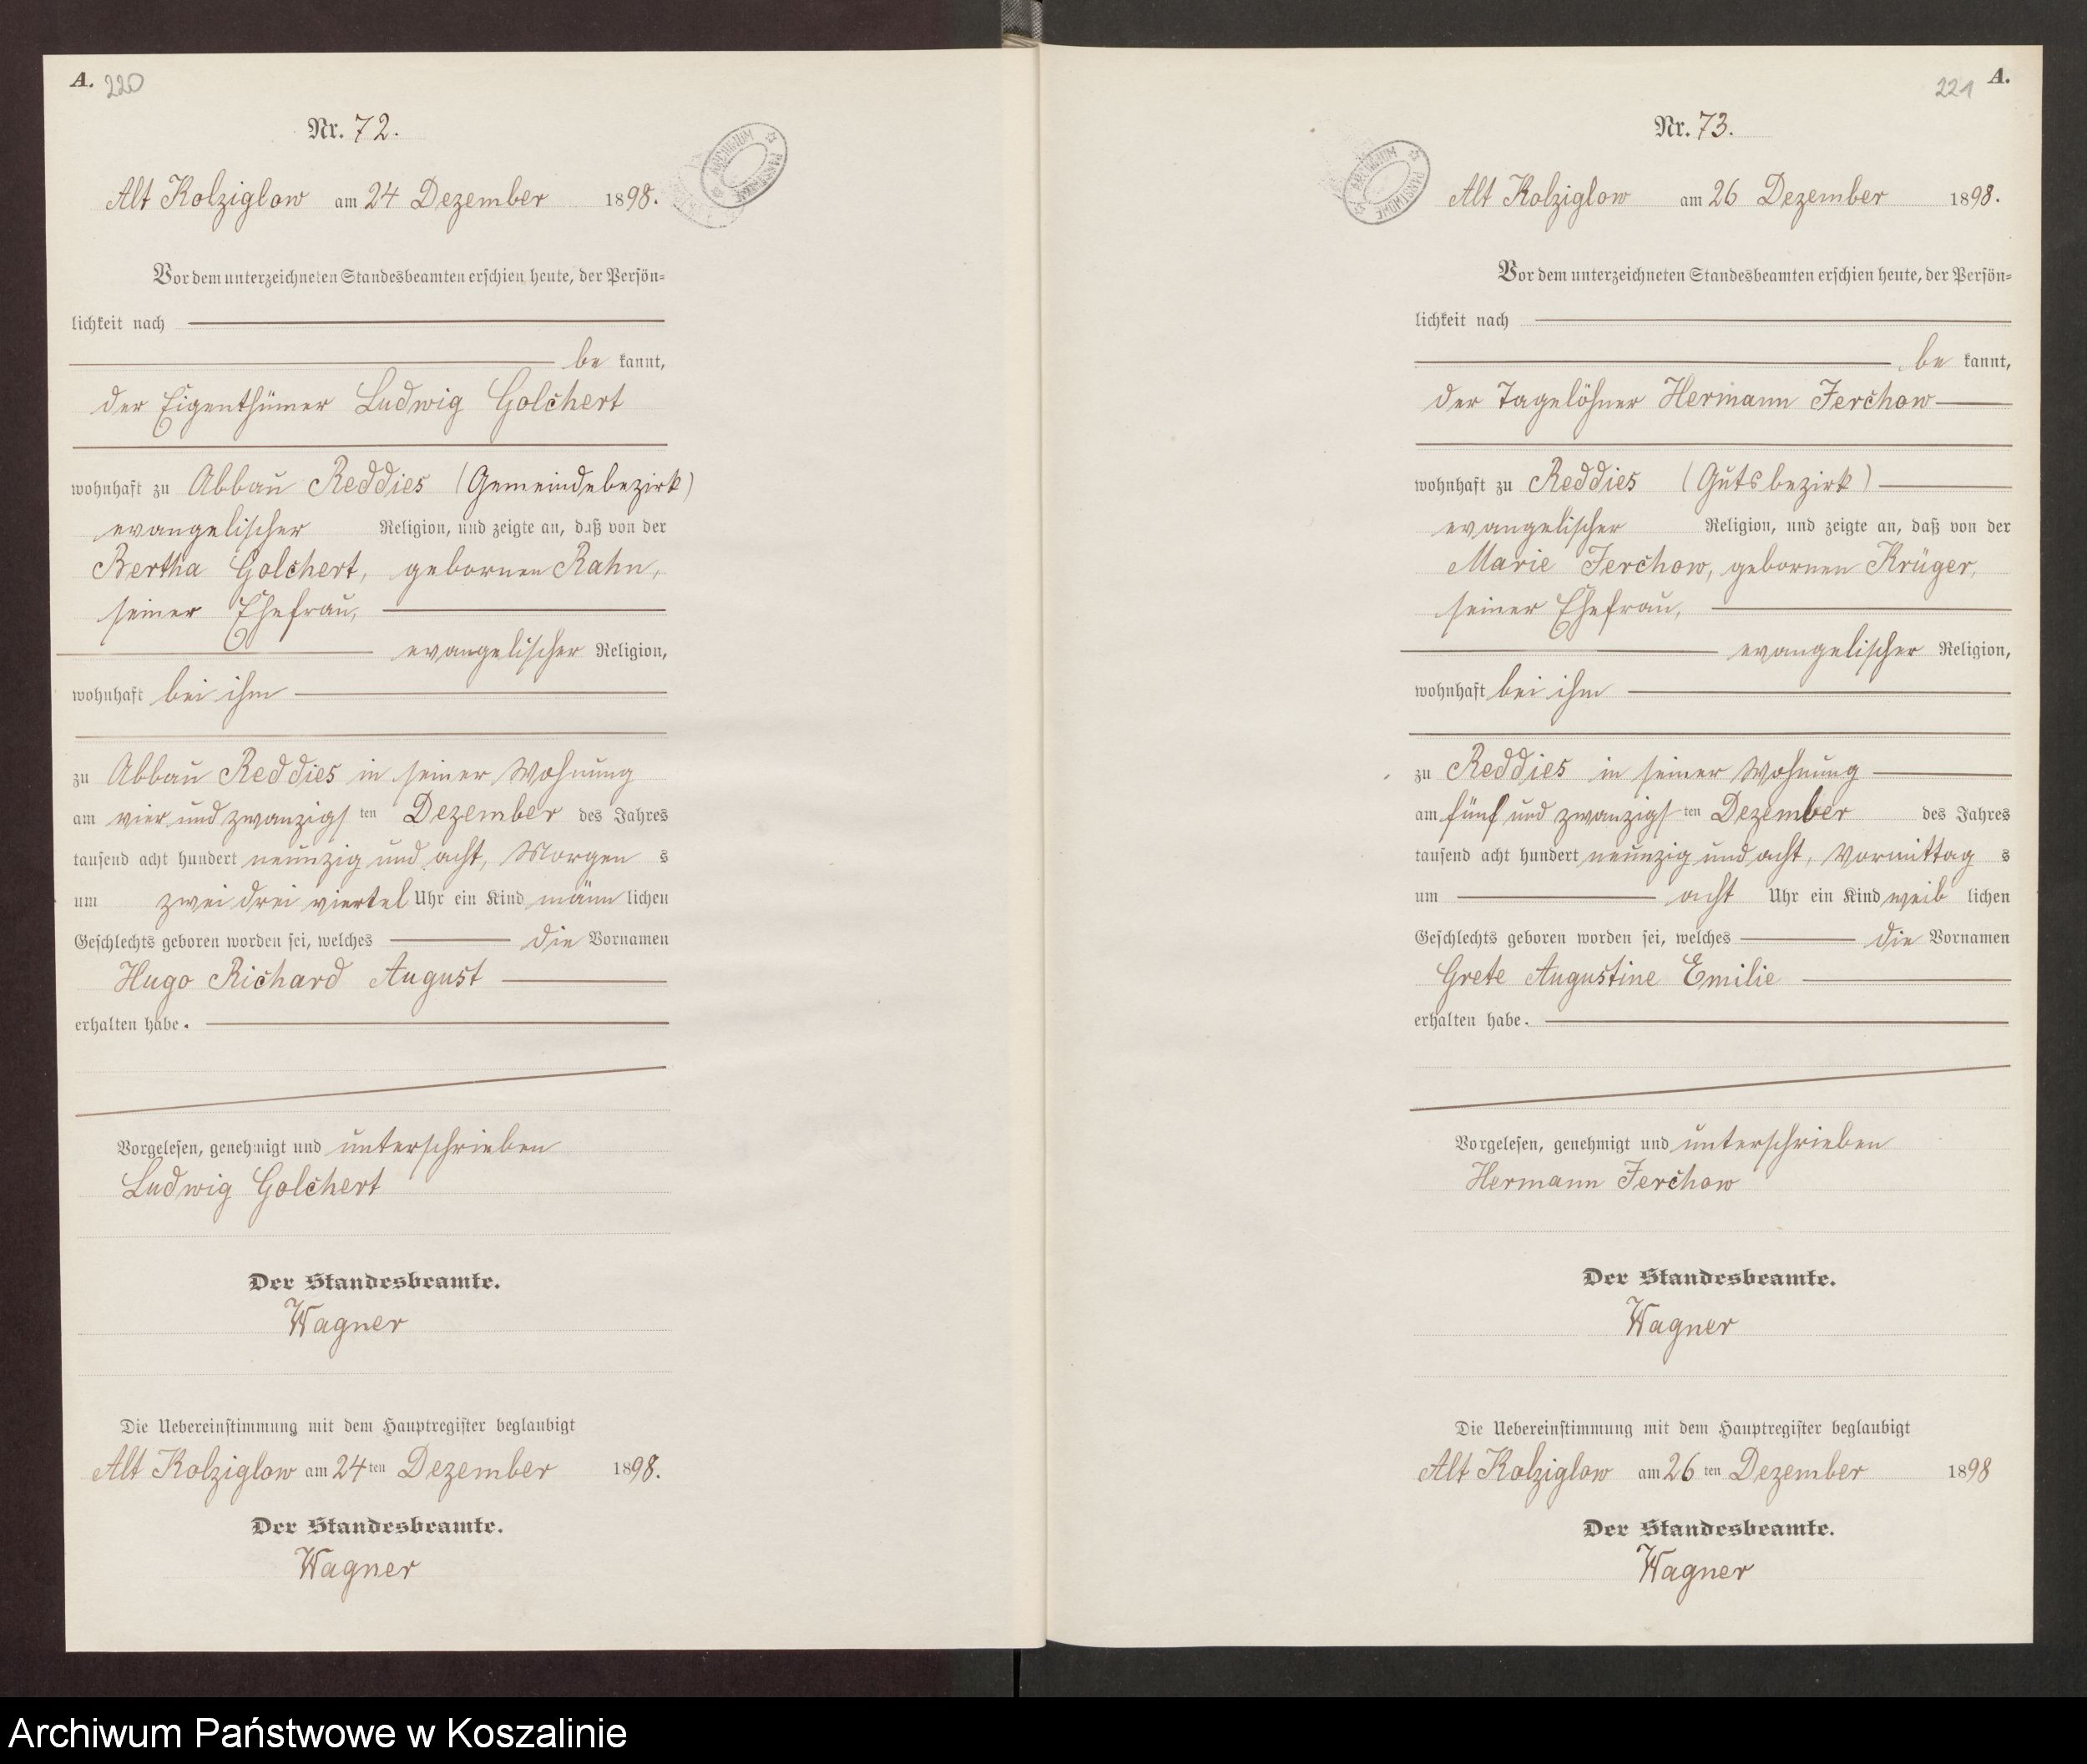 A. 220
Nr. 72.
Alt Kolziglow am 24 Dezember 1898.
Vor dem unterzeichneten Standesbeamten erschien heute, der Persön-
lichkeit nach
be kannt,
der Eigenthümer Ludwig Golchert
wohnhaft zu Abbau Reddies (Gemeindebezirk)
evangelischer Religion, und zeigte an, daß von der
Bertha Golchert, gebornen Rahn,
seiner Ehefrau,
evangelischer Religion,
wohnhaft bei ihm
zu Abbau Reddies in seiner Wohnung
am vier und zwanzigs ten Dezember des Jahres
tausend acht hundert neunzig und acht, Morgen s
um zwei drei viertel Uhr ein Kind männ lichen
Geschlechts geboren worden sei, welches die Vornamen
Hugo Richard August
erhalten habe.
Vorgelesen, genehmigt und unterschrieben
Ludwig Golchert
Der Standesbeamte.
Wagner
Die Uebereinstimmung mit dem Hauptregister beglaubigt
Alt Kolziglow am 24 ten Dezember 1898.
Der Standesbeamte.
Wagner
ARCHIWUM PAŃSTWOWE
221 A.
Nr. 73.
Alt Kolziglow am 26 Dezember 1898.
Vor dem unterzeichneten Standesbeamten erschien heute, der Persön-
lichkeit nach
be kannt,
der Tagelöhner Hermann Ferchow
wohnhaft zu Reddies (Gutsbezirk)
evangelischer Religion, und zeigte an, daß von der
Marie Ferchow, gebornen Krüger,
seiner Ehefrau,
evangelischer Religion,
wohnhaft bei ihm
zu Reddies in seiner Wohnung
am fünf und zwanzigs ten Dezember des Jahres
tausend acht hundert neunzig und acht, Vormittag s
um acht Uhr ein Kind weib lichen
Geschlechts geboren worden sei, welches die Vornamen
Grete Augustine Emilie
erhalten habe.
Vorgelesen, genehmigt und unterschrieben
Hermann Ferchow
Der Standesbeamte.
Wagner
Die Uebereinstimmung mit dem Hauptregister beglaubigt
Alt Kolziglow am 26 ten Dezember 1898
Der Standesbeamte.
Wagner
ARCHIWUM PAŃSTWOWE
Archiwum Państwowe w Koszalinie